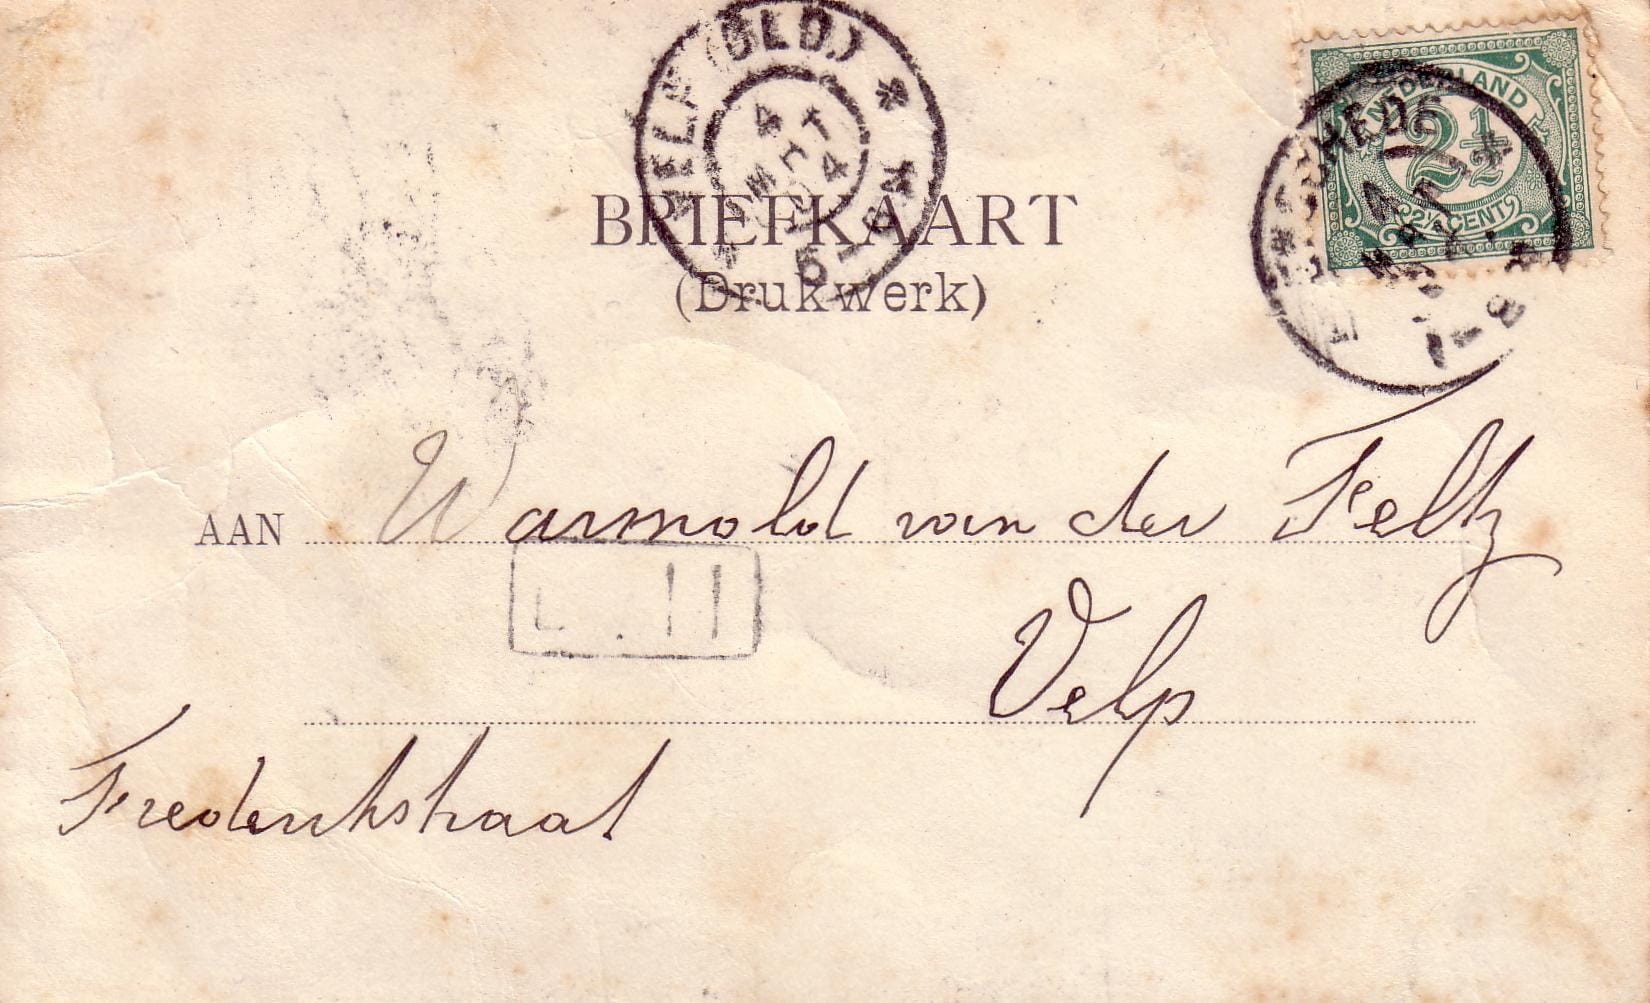 VELP (GLD.)
4 MRT 04
5
NEDERLAND
2½
2½ CENT
BRIEFKAART
(Drukwerk)
AAN Warmold van der Feltz
Velp
Frederikstraat